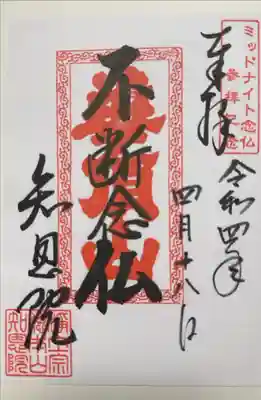 ミッドナイト念仏
参拝記念
奉拝
令和四年
四月十八日
華頂山
不断念仏
知恩院
知恩院